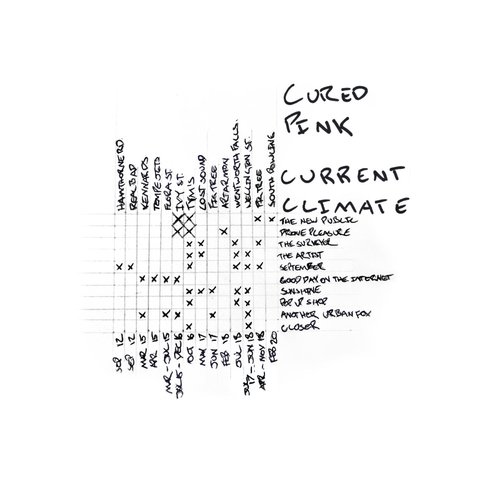 CURED
PINK
CURRENT
CLIMATE
HAWTHORNE RD.
REAL BAD
KENNARDS
TEMPE JETS
FLORA ST.
IVY ST.
TYM'S
LOST SOUND
FIR TREE
ARTARMON
WENTWORTH FALLS.
WELLINGTON ST.
FIR TREE
SOUTH BOWLING
THE NEW PUBLIC
PRONE PLEASURE
THE SURVEYOR
THE ARTIST
SEPTEMBER
GOOD DAY ON THE INTERNET
SUNSHINE
POP UP SHOP
ANOTHER URBAN FOX
CLOSER
SEP 12
SEP 12
MAR 15
APR 15
MAR - JUL 15
JUL 15 - DEC 16
OCT 16
MAY 17
JUN 17
FEB 18
JUL 18
17 - JUN 18
APR - NOV 18
FEB 20